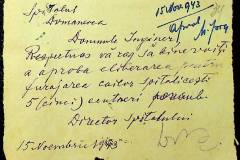 Spitalul
Domanovca
15 Nov 943
Aprob
Domnule Inginer
Respectuos vă rog să bine voiți
a aproba eliberarea pentru
furajarea cailor spitalicești
5 (cinci) centneri porumb.
Director Spitalului
15 Noembrie 1943